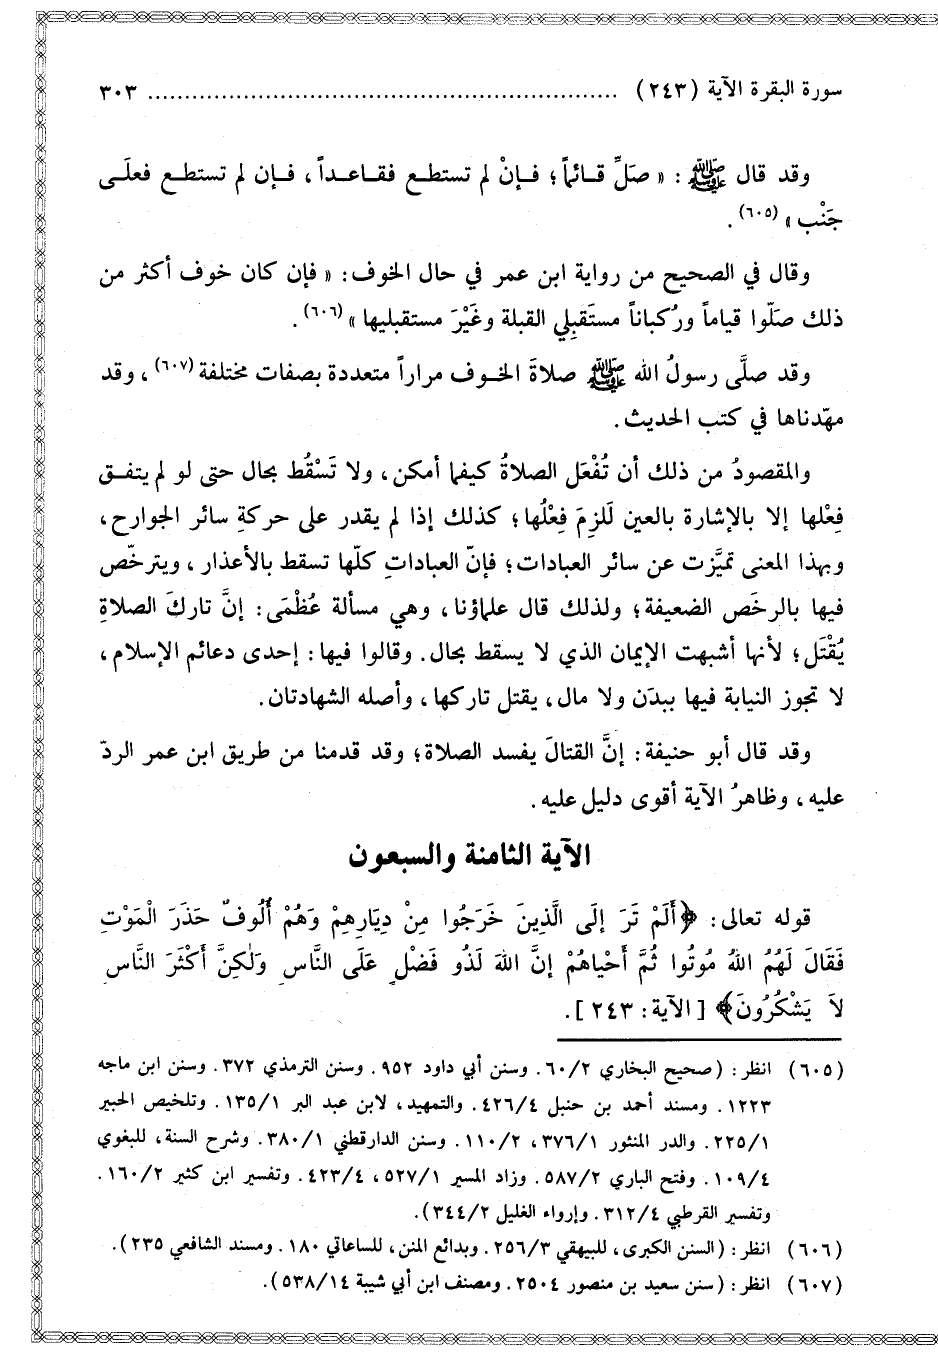 سورة البقرة الآية (٢٤٣) ................................................................ ٣٠٣
وقد قال ﷺ: « صَلِّ قائماً؛ فإنْ لم تستطع فقاعداً، فإن لم تستطع فعلَى
جَنْب » (٦٠٥).
وقال في الصحيح من رواية ابن عمر في حال الخوف: « فإن كان خوف أكثر من
ذلك صلّوا قياماً ورُكباناً مستَقبِلي القبلة وغَيْرَ مستقبليها » (٦٠٦).
وقد صلَّى رسولُ الله ﷺ صلاةَ الخوف مراراً متعددة بصفات مختلفة (٦٠٧)، وقد
مهّدناها في كتب الحديث.
والمقصودُ من ذلك أن تُفْعَل الصلاةُ كيفما أمكن، ولا تَسْقُط بحال حتى لو لم يتفق
فِعْلها إلا بالإشارة بالعين لَلزِمَ فِعْلُها؛ كذلك إذا لم يقدر على حركةِ سائر الجوارح،
وبهذا المعنى تميَّزت عن سائر العبادات؛ فإنّ العباداتِ كلّها تسقط بالأعذار، ويترخّص
فيها بالرخَص الضعيفة؛ ولذلك قال علماؤنا، وهي مسألة عُظْمَى: إنَّ تاركَ الصلاةِ
يُقْتَل؛ لأنها أشبهت الإيمان الذي لا يسقط بحال. وقالوا فيها: إحدى دعائم الإسلام،
لا تجوز النيابة فيها ببدَن ولا مال، يقتل تاركها، وأصله الشهادتان.
وقد قال أبو حنيفة: إنَّ القتالَ يفسد الصلاة؛ وقد قدمنا من طريق ابن عمر الردّ
عليه، وظاهرُ الآية أقوى دليل عليه.
الآية الثامنة والسبعون
قوله تعالى: ﴿أَلَمْ تَرَ إِلَى الَّذِينَ خَرَجُوا مِنْ دِيَارِهِمْ وَهُمْ أُلُوفٌ حَذَرَ الْمَوْتِ
فَقَالَ لَهُمُ اللهُ مُوتُوا ثُمَّ أَحْياهُمْ إِنَّ اللهَ لَذُو فَضْلٍ عَلَى النَّاسِ وَلٰكِنَّ أَكْثَرَ النَّاسِ
لاَ يَشْكُرُونَ﴾ [الآية: ٢٤٣].
(٦٠٥) انظر: (صحيح البخاري ٢/٦٠. وسنن أبي داود ٩٥٢. وسنن الترمذي ٣٧٢. وسنن ابن ماجه
١٢٢٣. ومسند أحمد بن حنبل ٤/٤٢٦. والتمهيد، لابن عبد البر ١/١٣٥. وتلخيص الحبير
١/٢٢٥. والدر المنثور ١/٣٧٦، ٢/١١٠. وسنن الدارقطني ١/٣٨٠. وشرح السنة، للبغوي
٤/١٠٩. وفتح الباري ٢/٥٨٧. وزاد المسير ١/٥٢٧، ٤/٤٢٣. وتفسير ابن كثير ٢/١٦٠.
وتفسير القرطبي ٤/٣١٢. وإرواء الغليل ٢/٣٤٤).
(٦٠٦) انظر: (السنن الكبرى، للبيهقي ٣/٢٥٦. وبدائع المنن، للساعاتي ١٨٠. ومسند الشافعي ٢٣٥).
(٦٠٧) انظر: (سنن سعيد بن منصور ٢٥٠٤. ومصنف ابن أبي شيبة ١٤/٥٣٨).